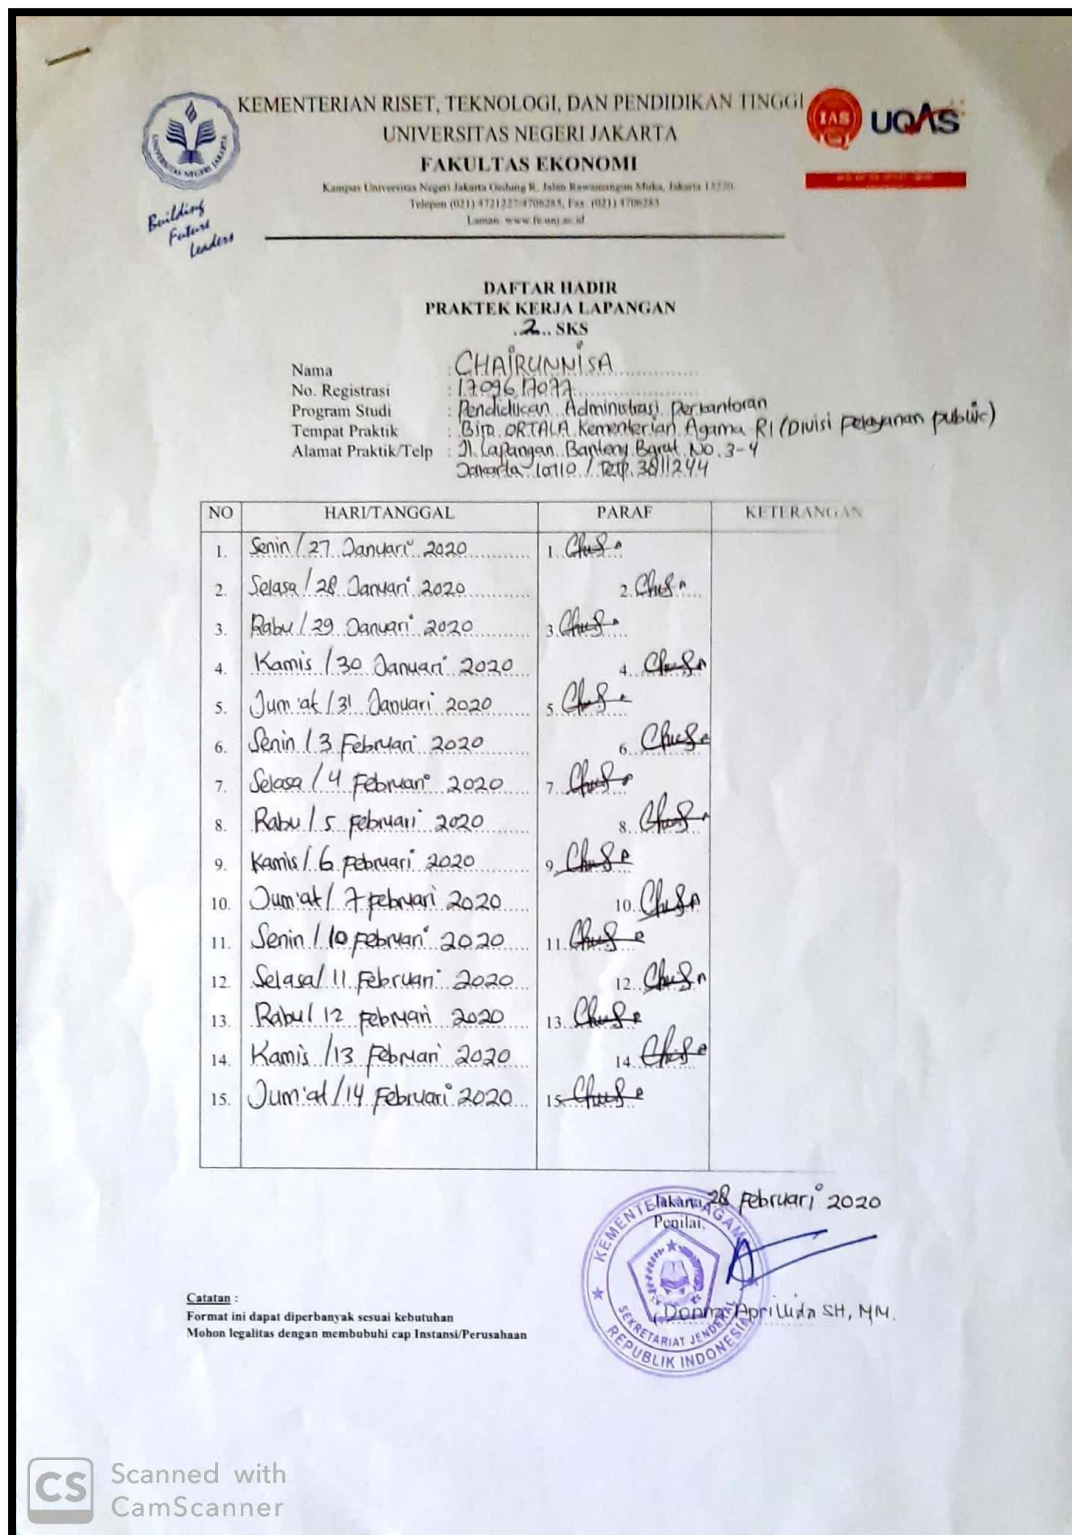 KEMENTERIAN RISET, TEKNOLOGI, DAN PENDIDIKAN TINGGI
UNIVERSITAS NEGERI JAKARTA
FAKULTAS EKONOMI
Kampus Universitas Negeri Jakarta Gedung R, Jalan Rawamangun Muka, Jakarta 13220
Telepon (021) 4721227/4706285, Fax. (021) 4706285
Laman www.fe.unj.ac.id
UNIVERSITAS NEGERI JAKARTA
Building
Future
Leaders
IAS
UQAS
DAFTAR HADIR
PRAKTEK KERJA LAPANGAN
.2.. SKS
Nama : CHAIRUNNISA
No. Registrasi : 1709617077
Program Studi : Pendidikan Administrasi Perkantoran
Tempat Praktik : Biro ORTALA Kementerian Agama RI (Divisi Pelayanan public)
Alamat Praktik/Telp : Jl. Lapangan Banteng Barat No. 3-4
Jakarta 10710 / Telp. 3811244
NO HARI/TANGGAL PARAF KETERANGAN
1. Senin / 27 Januari 2020 1.
2. Selasa / 28 Januari 2020 2.
3. Rabu / 29 Januari 2020 3.
4. Kamis / 30 Januari 2020 4.
5. Jum'at / 31 Januari 2020 5.
6. Senin / 3 Februari 2020 6.
7. Selasa / 4 Februari 2020 7.
8. Rabu / 5 Februari 2020 8.
9. Kamis / 6 Februari 2020 9.
10. Jum'at / 7 Februari 2020 10.
11. Senin / 10 Februari 2020 11.
12. Selasa / 11 Februari 2020 12.
13. Rabu / 12 Februari 2020 13.
14. Kamis / 13 Februari 2020 14.
15. Jum'at / 14 Februari 2020 15.
Jakarta, 28 Februari 2020
Penilai,
KEMENTERIAN AGAMA
SEKRETARIAT JENDERAL
REPUBLIK INDONESIA
(Donna Aprillida SH, MM.
Catatan :
Format ini dapat diperbanyak sesuai kebutuhan
Mohon legalitas dengan membubuhi cap Instansi/Perusahaan
CS Scanned with
CamScanner